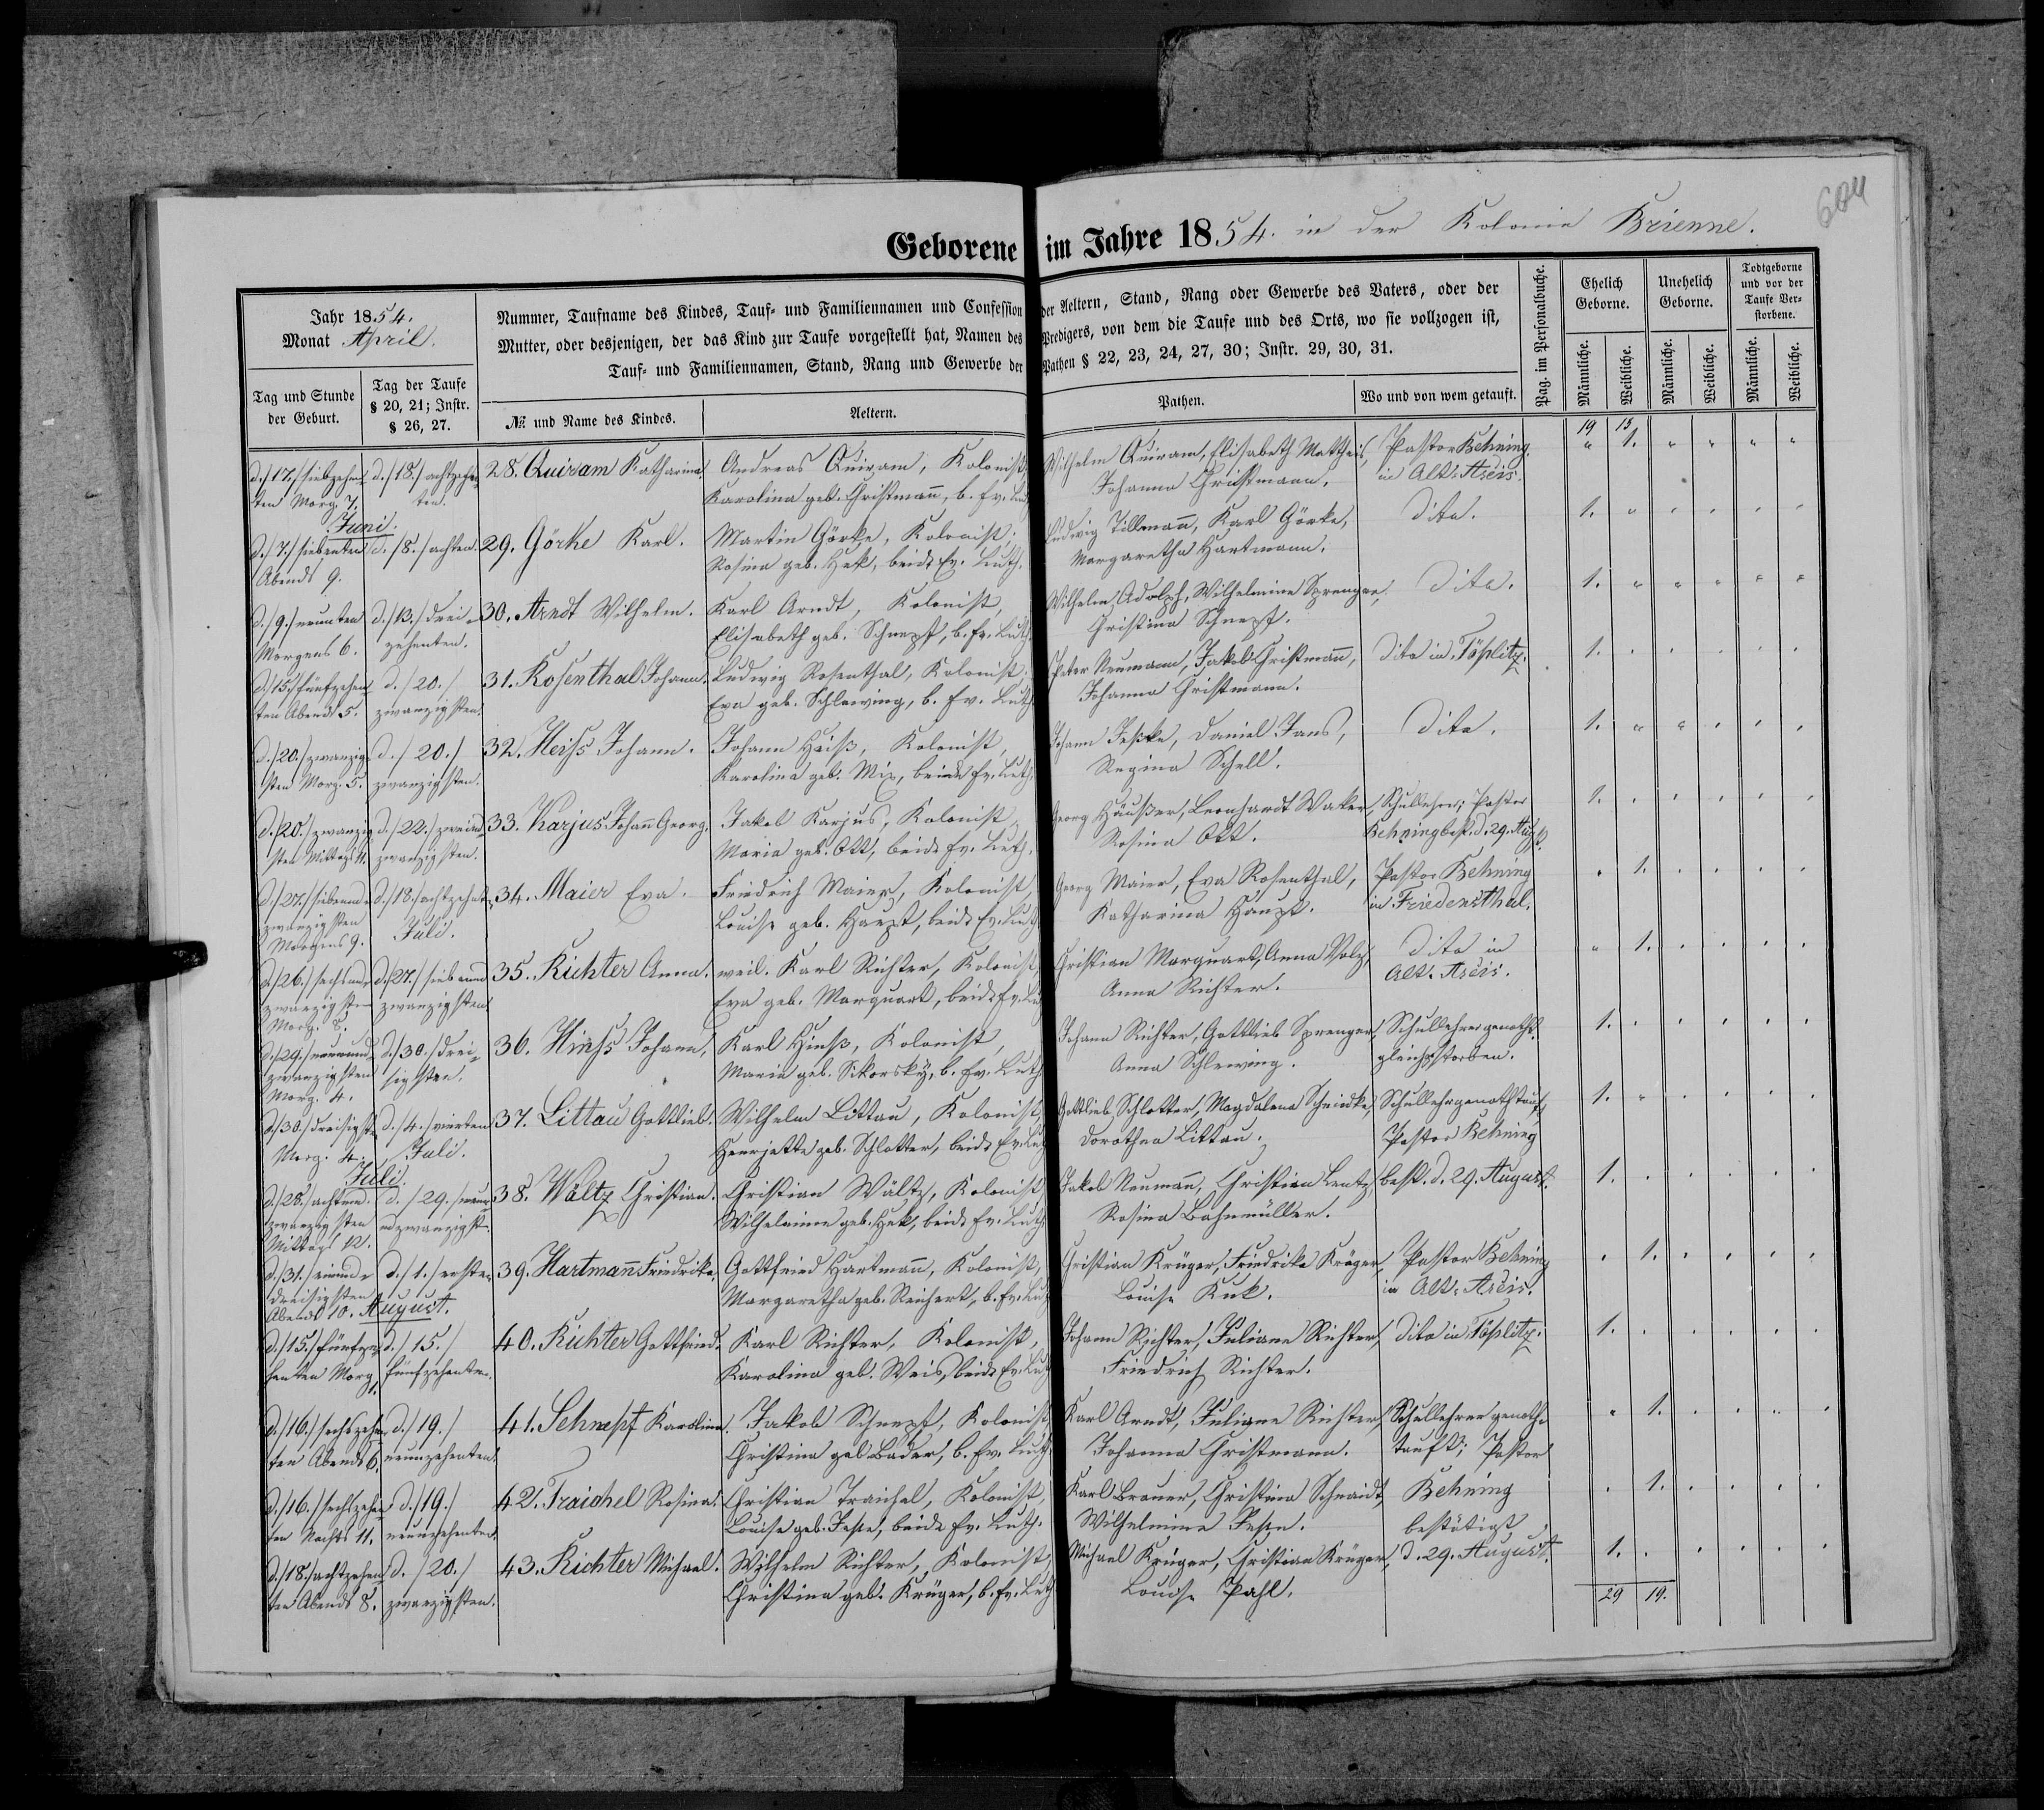 604
Geborene im Jahre 1854. in der Kolonie Brienne.
Jahr 1854.
Monat April.
Tag und Stunde der Geburt.
Tag der Taufe § 20, 21; Instr. § 26, 27.
Nummer, Taufname des Kindes, Tauf- und Familiennamen und Confession der Aeltern, Stand, Rang oder Gewerbe des Vaters, oder der
Mutter, oder desjenigen, der das Kind zur Taufe vorgestellt hat, Namen des Predigers, von dem die Taufe und des Orts, wo sie vollzogen ist,
Tauf- und Familiennamen, Stand, Rang und Gewerbe der Pathen § 22, 23, 24, 27, 30; Instr. 29, 30, 31.
№ und Name des Kindes.
Aeltern.
Pathen.
Wo und von wem getauft.
Pag. im Personalbuche.
Ehelich Geborne.
Unehelich Geborne.
Todtgeborne und vor der Taufe Verstorbene.
Männliche. Weibliche. Männliche. Weibliche. Männliche. Weibliche.
19 15
d./17./siebzehn- d./18./achtzehn- 28. Quiram Katharina. Andreas Quiram, Kolonist, Wilhelm Quiram, Elisabeth Mattheis, Pastor Behning " 1. " " " "
ten Morg. 7. ten. Karolina geb. Christmann, b. Ev. Luth. Johanna Christmann. in Alt-Arcis.
Juni.
d./7./siebenten d./8./achten. 29. Görke Karl. Martin Görke, Kolonist; Ludwig Tillmann, Karl Görke, Dito. 1.
Abends 9. Rosina geb. Hek, beide Ev. Luth. Margaretha Hartmann.
d./9./neunten d./13./drei- 30. Arndt Wilhelm. Karl Arndt, Kolonist, Wilhelm Adolph, Wilhelmine Sprenger, Dito. 1.
Morgens 6. zehenten. Elisabeth geb. Schnepf, b. Ev. Luth. Christina Schnepf.
d./15./fünfzehen- d./20./ 31. Rosenthal Johann. Ludwig Rosenthal, Kolonist; Peter Neumann, Jakob Christmann, Dito in Töplitz. 1.
ten Abends 5. zwanzigsten. Eva geb. Schlewing, b. Ev. Luth. Johanna Christmann.
d./20./zwanzig- d./20./ 32. Heiss Johann. Johann Heiß, Kolonist, Johann Jeske, Daniel Jans, Dito. 1.
sten Morg. 5. zwanzigsten. Karolina geb. Mix, beide Ev. Luth. Regina Schell.
d./20./zwanzig- d./22./zweiund- 33. Karjus Johann Georg. Jakob Karjus, Kolonist, Georg Häußer, Leonhardt Waker, Schullehrer; Pastor 1.
sten Mittags 11. zwanzigsten. Maria geb. Ott, beide Ev. Luth. Rosina Ott. Behning best. d. 29. Aug.
d./27./siebenund- d./18./achtzehnt. 34. Maier Eva. Friedrich Maier, Kolonist, Georg Maier, Eva Rosenthal, Pastor Behning 1.
zwanzigsten Juli. Louise geb. Haupt, beide Ev. Luth. Katharina Haupt. in Friedensthal.
Morgens 9.
d./26./sechsund- d./27./siebenund 35. Richter Anna. weil. Karl Richter, Kolonist, Christian Marquart, Anna Volz, Dito in 1.
zwanzigsten zwanzigsten. Eva geb. Marquart, beide Ev. Luth. Anna Richter. Alt-Arcis.
Morg. 8.
d./29./neunund- d./30./drei- 36. Hinss Johann. Karl Hinß, Kolonist, Johann Richter, Gottlieb Sprenger, Schullehrer 1.
zwanzigsten sigsten. Maria geb. Sikorsky, b. Ev. Luth. Anna Schlewing. gleich gestorben.
Morg. 4.
d./30./dreisigst. d./4./vierten 37. Littau Gottlieb. Wilhelm Littau, Kolonist, Gottlieb Schlotter, Magdalena Schmidke, 1.
Morg. 4. Juli. Henriette geb. Schlotter, beide Ev. Luth. Dorothea Littau. Pastor Behning
Juli.
d./28./achtund- d./29./neun- 38. Wältz Christian. Christian Wältz, Kolonist, Jakob Neumann, Christian Lentz, best. d. 29. August. 1.
zwanzigsten undzwanzigst. Wilhelmine geb. Hek, beide Ev. Luth. Rosina Bohnmüller.
Mittags 12.
d./31./einund- d./1./ersten 39. Hartmann Friedrika. Gottfried Hartmann, Kolonist, Christian Krüger, Friedrika Krüger, Pastor Behning 1.
dreisigsten Margaretha geb. Reichert, b. Ev. Luth. Louise Kuk. in Alt-Arcis.
Abends 10. August.
d./15./fünfze- d./15./ 40. Richter Gottfried. Karl Richter, Kolonist, Johann Richter, Juliane Richter, Dito in Töplitz. 1.
henten Morg. 1. fünfzehenten. Karolina geb. Weis, beide Ev. Luth. Friedrich Richter.
d./16./sechszehn- d./19./ 41. Schnepf Karolina. Jakob Schnepf, Kolonist, Karl Arndt, Juliane Richter, Schullehrer genoth- 1.
ten Abends 6. neunzehenten. Christina geb. Bader, b. Ev. Luth. Johanna Christmann. tauft; Pastor
d./16./sechszehn- d./19./ 42. Traichel Rosina. Christian Traichel, Kolonist, Karl Brauer, Christina Schmidt, Behning 1.
ten Nachts 11. neunzehenten. Louise geb. Jeske, beide Ev. Luth. Wilhelmine Jeske. bestätigt
d./18./achtzehen- d./20./ 43. Richter Michael. Wilhelm Richter, Kolonist, Michael Krüger, Christian Krüger, d. 29. August. 1.
ten Abends 8. zwanzigsten. Christina geb. Krüger, b. Ev. Luth. Louise Pahl.
29 19.